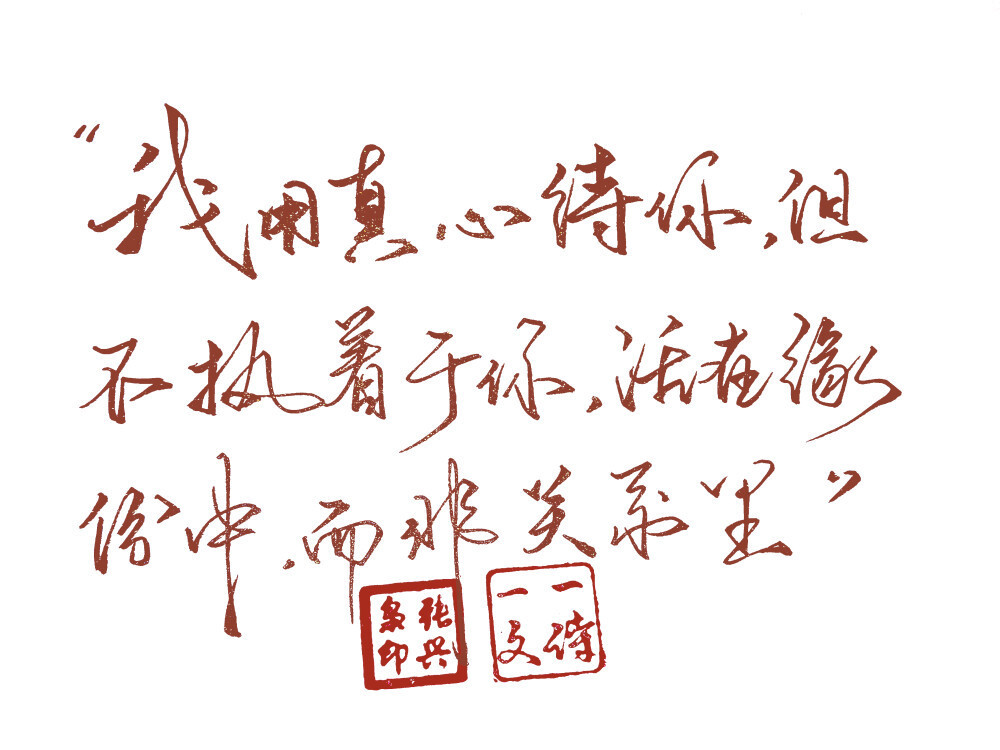 “我用真心待你，但
不执着于你，活在缘
份中，而非关系里”
张兴
枭印
一诗
一文